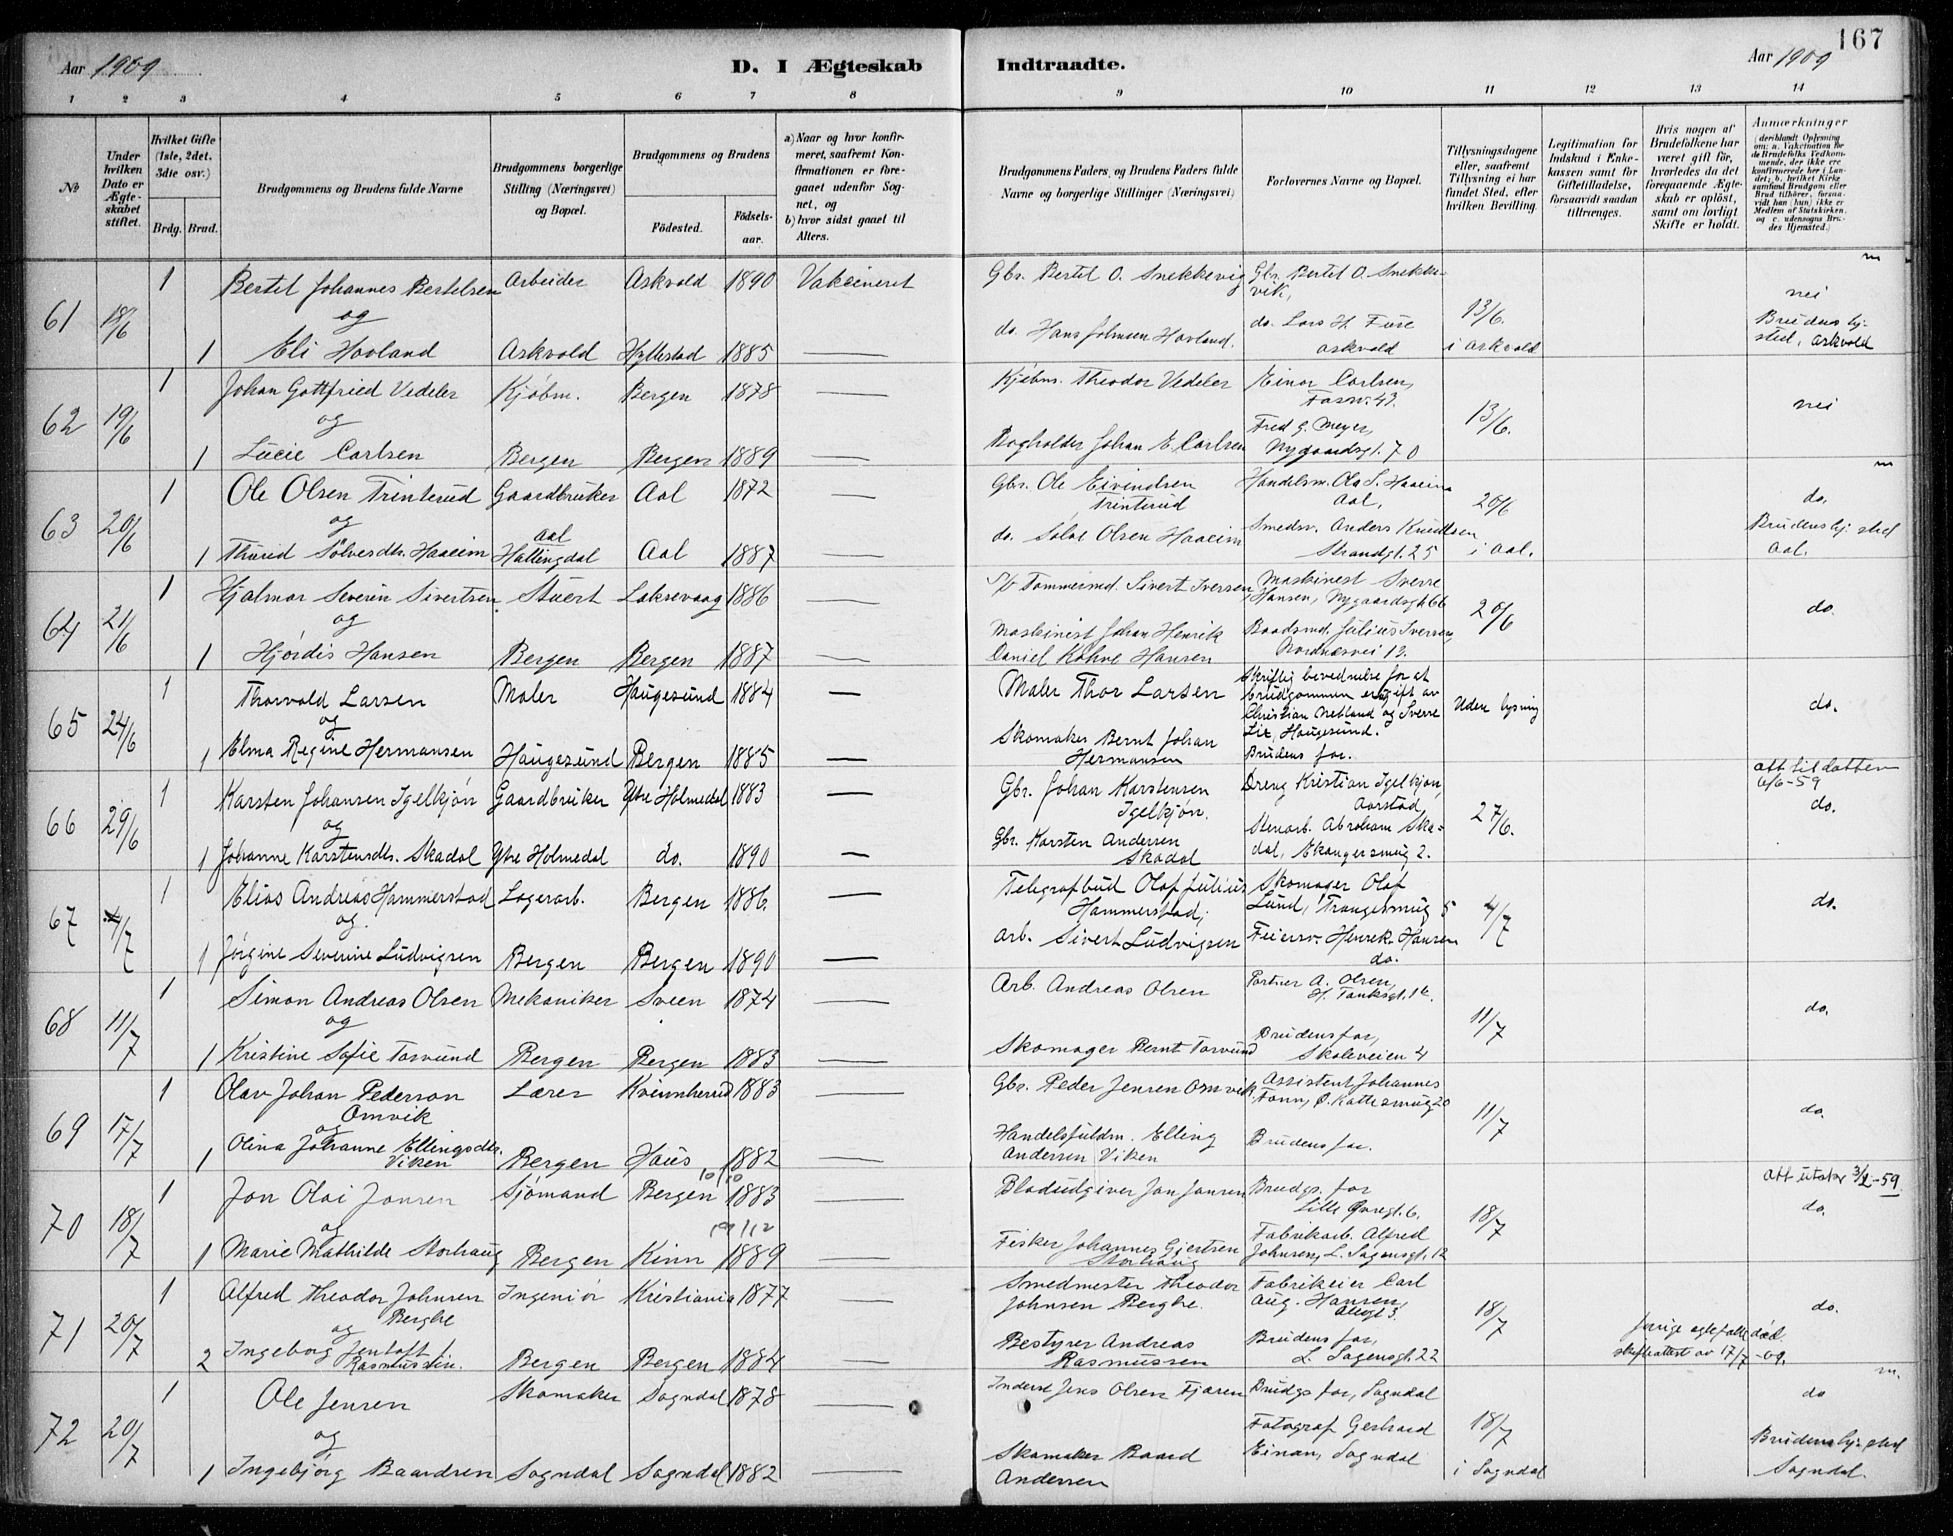 167
Aar 1909
D. I Ægteskab Indtraadte.
Aar 1909
1 2 3 4 5 6 7 8 9 10 11 12 13 14
№
Under hvilken Dato er Ægteskabet stiftet.
Hvilket Gifte (1ste, 2det, 3die osv.)
Brdg. Brud.
Brudgommens og Brudens fulde Navne
Brudgommens borgerlige Stilling (Næringsvei) og Bopæl.
Brudgommens og Brudens
Fødested. Fødselsaar.
a) Naar og hvor konfirmeret, saafremt Konfirmationen er foregaaet udenfor Sognet, og
b) hvor sidst gaaet til Alters.
Brudgommens Faders og Brudens Faders fulde Navne og borgerlige Stillinger (Næringsvei)
Forlovernes Navne og Bopæl.
Tillysningsdagene eller, saafremt Tillysning ei har fundet Sted, efter hvilken Bevilling.
Legitimation for Indskud i Enkekassen samt for Giftetilladelse, forsaavidt saadan tiltrænges.
Hvis nogen af Brudefolkene har været gift før, hvorledes da det foregaaende Ægteskab er opløst, samt om lovligt Skifte er holdt.
Anmærkninger
(deriblandt Oplysning om: a. Vakcination for de Brudefolks Vedkommende, der ikke ere konfirmerede her i Landet; b. hvilket Kirkesamfund Brudgom eller Brud tilhører, forsaavidt han (hun) ikke er Medlem af Statskirken, og c. udensogns Brudes Hjemsted.)
61 18/6 1 Bertel Johannes Bertelsen Arbeider Askvold 1890 Vakcineret Gbr. Bertel O. Snekkevig Gbr. Bertel O. Snekkevik, 13/6. nei
og
1 Eli Hovland Askvold Hyllestad 1885 — do. Hans Johnsen Hovland. do. Lars H. Fure Askvold i Askvold Brudens hj. sted, Askvold
62 19/6 1 Johan Gottfried Vedeler Kjøbm. Bergen 1878 — Kjøbm. Theodor Vedeler Einar Carlsen, 43. 13/6. nei
og
1 Lucie Carlsen Bergen Bergen 1889 — Bogholder Johan E. Carlsen Fred G. Meyer, Nygaardsgt. 70
63 20/6 1 Ole Olsen Trinterud Gaardbruker Aal 1872 — Gbr. Ole Eivindsen Trinterud Handelsm. Ola S. Haaeim Aal. 20/6 do.
og
1 Thurid Sølvesdtr. Haaeim Aal Hallingdal Aal 1887 — do. Solve Olsen Haaeim Smedsv. Anders Knudsen Strandgt. 25 i Aal. Brudens hj. sted Aal.
64 21/6 1 Hjalmar Severin Sivertsen Stuert Laksevaag 1886 — Tømmermd. Sivert Iversen Maskinist Sverre Hansen, Nygaardsgt. 66 20/6 do.
og
1 Hjørdis Hansen Bergen Bergen 1887 — Maskinist Johan Henrik Daniel Køhne Hansen Baadsmd. Julius Iversen, Nordnesvei 13.
65 24/6 1 Thorvald Larsen Maler Haugesund 1884 — Maler Thor Larsen Skriftlig bevidnelse for at brudgommen er ugift av Christian Netland og Sverre Lie, Haugesund. Uden lysning do.
og
1 Elma Regine Hermansen Haugesund Bergen 1885 — Skomaker Bernt Johan Hermansen Brudens far.
66 29/6 1 Karsten Johansen Igelkjøn Gaardbruker Ytre Holmedal 1883 — Gbr. Johan Karstensen Igelkjøn. Dreng Kristian Igelkjøn, Aarstad 27/6. att til datteren 6/6-59 do.
og
1 Johanne Karstensdtr. Skadal Ytre Holmedal do. 1890 — Gbr. Karsten Andersen Skadal Stenarb. Abraham Skadal, Ekangersmug 2.
67 4/7 1 Elias Andreas Hammerstad Lagerarb. Bergen 1886. — Telegrafbud Olaf Julius Hammerstad, Skomager Olaf Lund, Trangesmug 5 4/7 do.
og
1 Jørgine Severine Ludvigsen Bergen Bergen 1890 — Arb. Sivert Ludvigsen Feiersv. Henrik Hansen do.
68 11/7 1 Simon Andreas Olsen Mekaniker Sveen 1874 — Arb. Andreas Olsen Portner A. Olsen, H. Tanksgt. 11/7 do.
og
1 Kristine Sofie Torvund Bergen Bergen 1883 — Skomager Bernt Torvund Brudens far, Skoleveien 4
69 17/7 1 Olav Johan Pederson Omvik Lærer Kvinnherred 1883 — Gbr. Peder Jensen Omvik. Assistent Johannes Fonn, Ø. Kattesmug 20 11/7 do.
og
1 Olina Johanne Ellingsdtr. Viken Bergen Haus 1882 — Handelsfuldm. Elling Andersen Viken Brudens far.
70 18/7 1 Jon Olai Jonsen Sjømand Bergen 10/10 1883 — Bladudgiver Jon Jonsen Brudgs. far Lille Øvregt. 6. 18/7 att utstdr 3/2-59 do.
og
1 Marie Mathilde Storhaug Bergen Kinn 1889 — Fisker Johannes Gjertsen Storhaug Fabrikarb. Alfred Johnsen, L. Sagensgt. 12
71 20/7 1 Alfred Theodor Johnsen Berghe Ingeniør Kristiania 1877 — Smedmester Theodor Johnsen Berghe. Fabrikeier Carl Aug. Hansen, Allegt 3. 18/7 do.
og
2 Ingeborg Jentoft f. Rasmussen. Bergen Bergen 1884 — Bestyrer Andreas Rasmussen Brudens far, L. Sagensgt. 22 forrige egtefælle død. skifteattest av 17/7-09.
72 20/7 1 Ole Jensen Skomaker Sogndal 1878 — Inderst Jens Olsen Fjæren Brudgs far, Sogndal 18/7 do
og
1 Ingebjørg Baardsen Sogndal Sogndal 1882 — Skomaker Baard Andersen Fotograf Gerhard Einan, Sogndal i Sogndal Brudens hj. sted Sogndal.